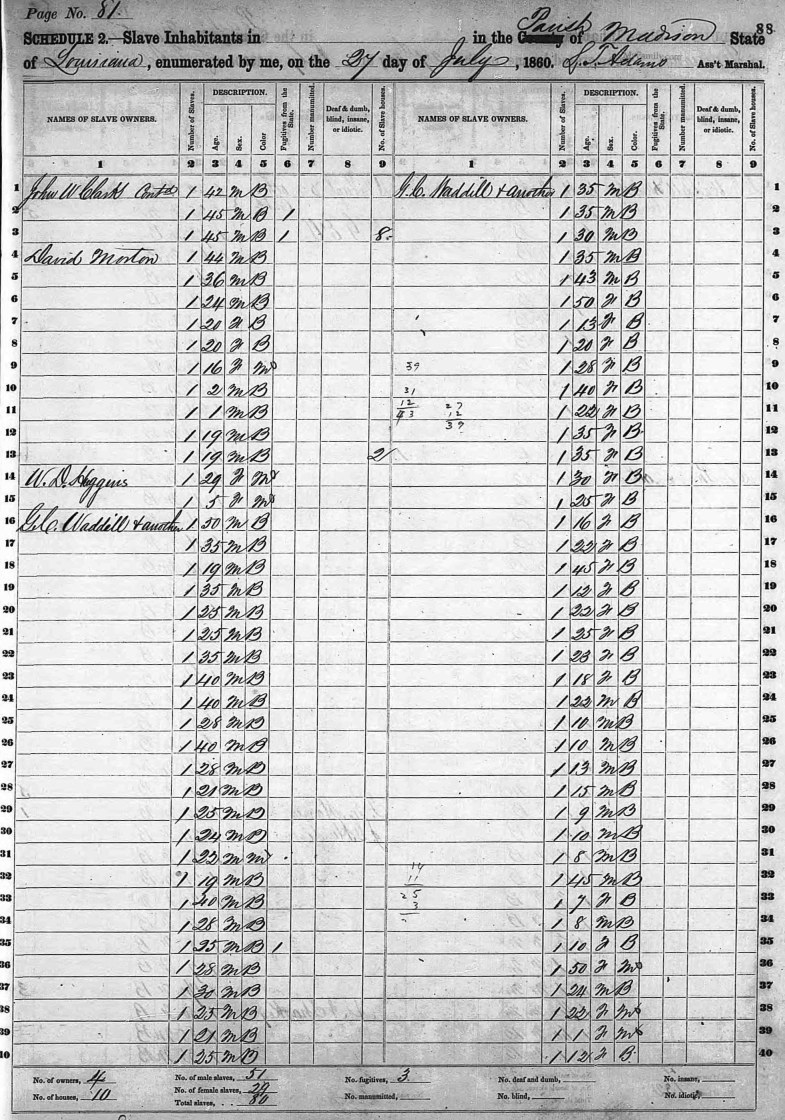 Page No. 81.
88
SCHEDULE 2.—Slave Inhabitants in in the County Parish of Madison State
of Louisiana, enumerated by me, on the 27 day of July, 1860. Ass't Marshal.
NAMES OF SLAVE OWNERS. Number of Slaves. DESCRIPTION. Age. Sex. Color. Fugitives from the State. Number manumitted. Deaf & dumb, blind, insane, or idiotic. No. of Slave houses. NAMES OF SLAVE OWNERS. Number of Slaves. DESCRIPTION. Age. Sex. Color. Fugitives from the State. Number manumitted. Deaf & dumb, blind, insane, or idiotic. No. of Slave houses.
1 2 3 4 5 6 7 8 9 1 2 3 4 5 6 7 8 9
1 John W Clark Contd 1 42 M B G. C. Waddill & another 1 35 M B 1
2 1 45 M B 1 1 35 M B 2
3 1 45 M B 1 8 1 30 M B 3
4 David Morton 1 44 M B 1 35 M B 4
5 1 36 M B 1 43 M B 5
6 1 24 M B 1 50 F B 6
7 1 20 F B 1 13 F B 7
8 1 20 F B 1 20 F B 8
9 1 16 F Mo 39 1 28 F B 9
10 1 2 M B 31 1 40 F B 10
11 1 1 M B 12 43 27 12 1 22 F B 11
12 1 19 M B 39 1 35 F B 12
13 1 19 M B 2 1 35 F B 13
14 W. D. Higgins 1 29 F Mo 1 30 F B 14
15 1 5 F Mo 1 25 F B 15
16 G. C. Waddill & another 1 50 M B 1 16 F B 16
17 1 35 M B 1 22 F B 17
18 1 19 M B 1 45 F B 18
19 1 35 M B 1 12 F B 19
20 1 25 M B 1 22 F B 20
21 1 25 M B 1 25 F B 21
22 1 35 M B 1 23 F B 22
23 1 40 M B 1 18 F B 23
24 1 40 M B 1 22 M B 24
25 1 28 M B 1 10 M B 25
26 1 40 M B 1 10 M B 26
27 1 28 M B 1 13 M B 27
28 1 21 M B 1 15 M B 28
29 1 25 M B 1 9 M B 29
30 1 24 M B 1 10 M B 30
31 1 22 M M 1 8 M B 31
32 1 19 M B 14 11 1 45 M B 32
33 1 40 M B 25 3 1 7 F B 33
34 1 28 M B 1 8 M B 34
35 1 35 M B 1 1 10 F B 35
36 1 28 M B 1 50 F Mo 36
37 1 30 M B 1 24 M B 37
38 1 25 M B 1 22 F Mo 38
39 1 21 M B 1 1 F Mo 39
40 1 25 M B 1 12 F B 40
No. of owners, 4 No. of male slaves, 51 No. fugitives, 3 No. deaf and dumb, No. insane,
No. of houses, 10 No. of female slaves, 29 No. manumitted, No. blind, No. idiotic,
Total slaves, 80